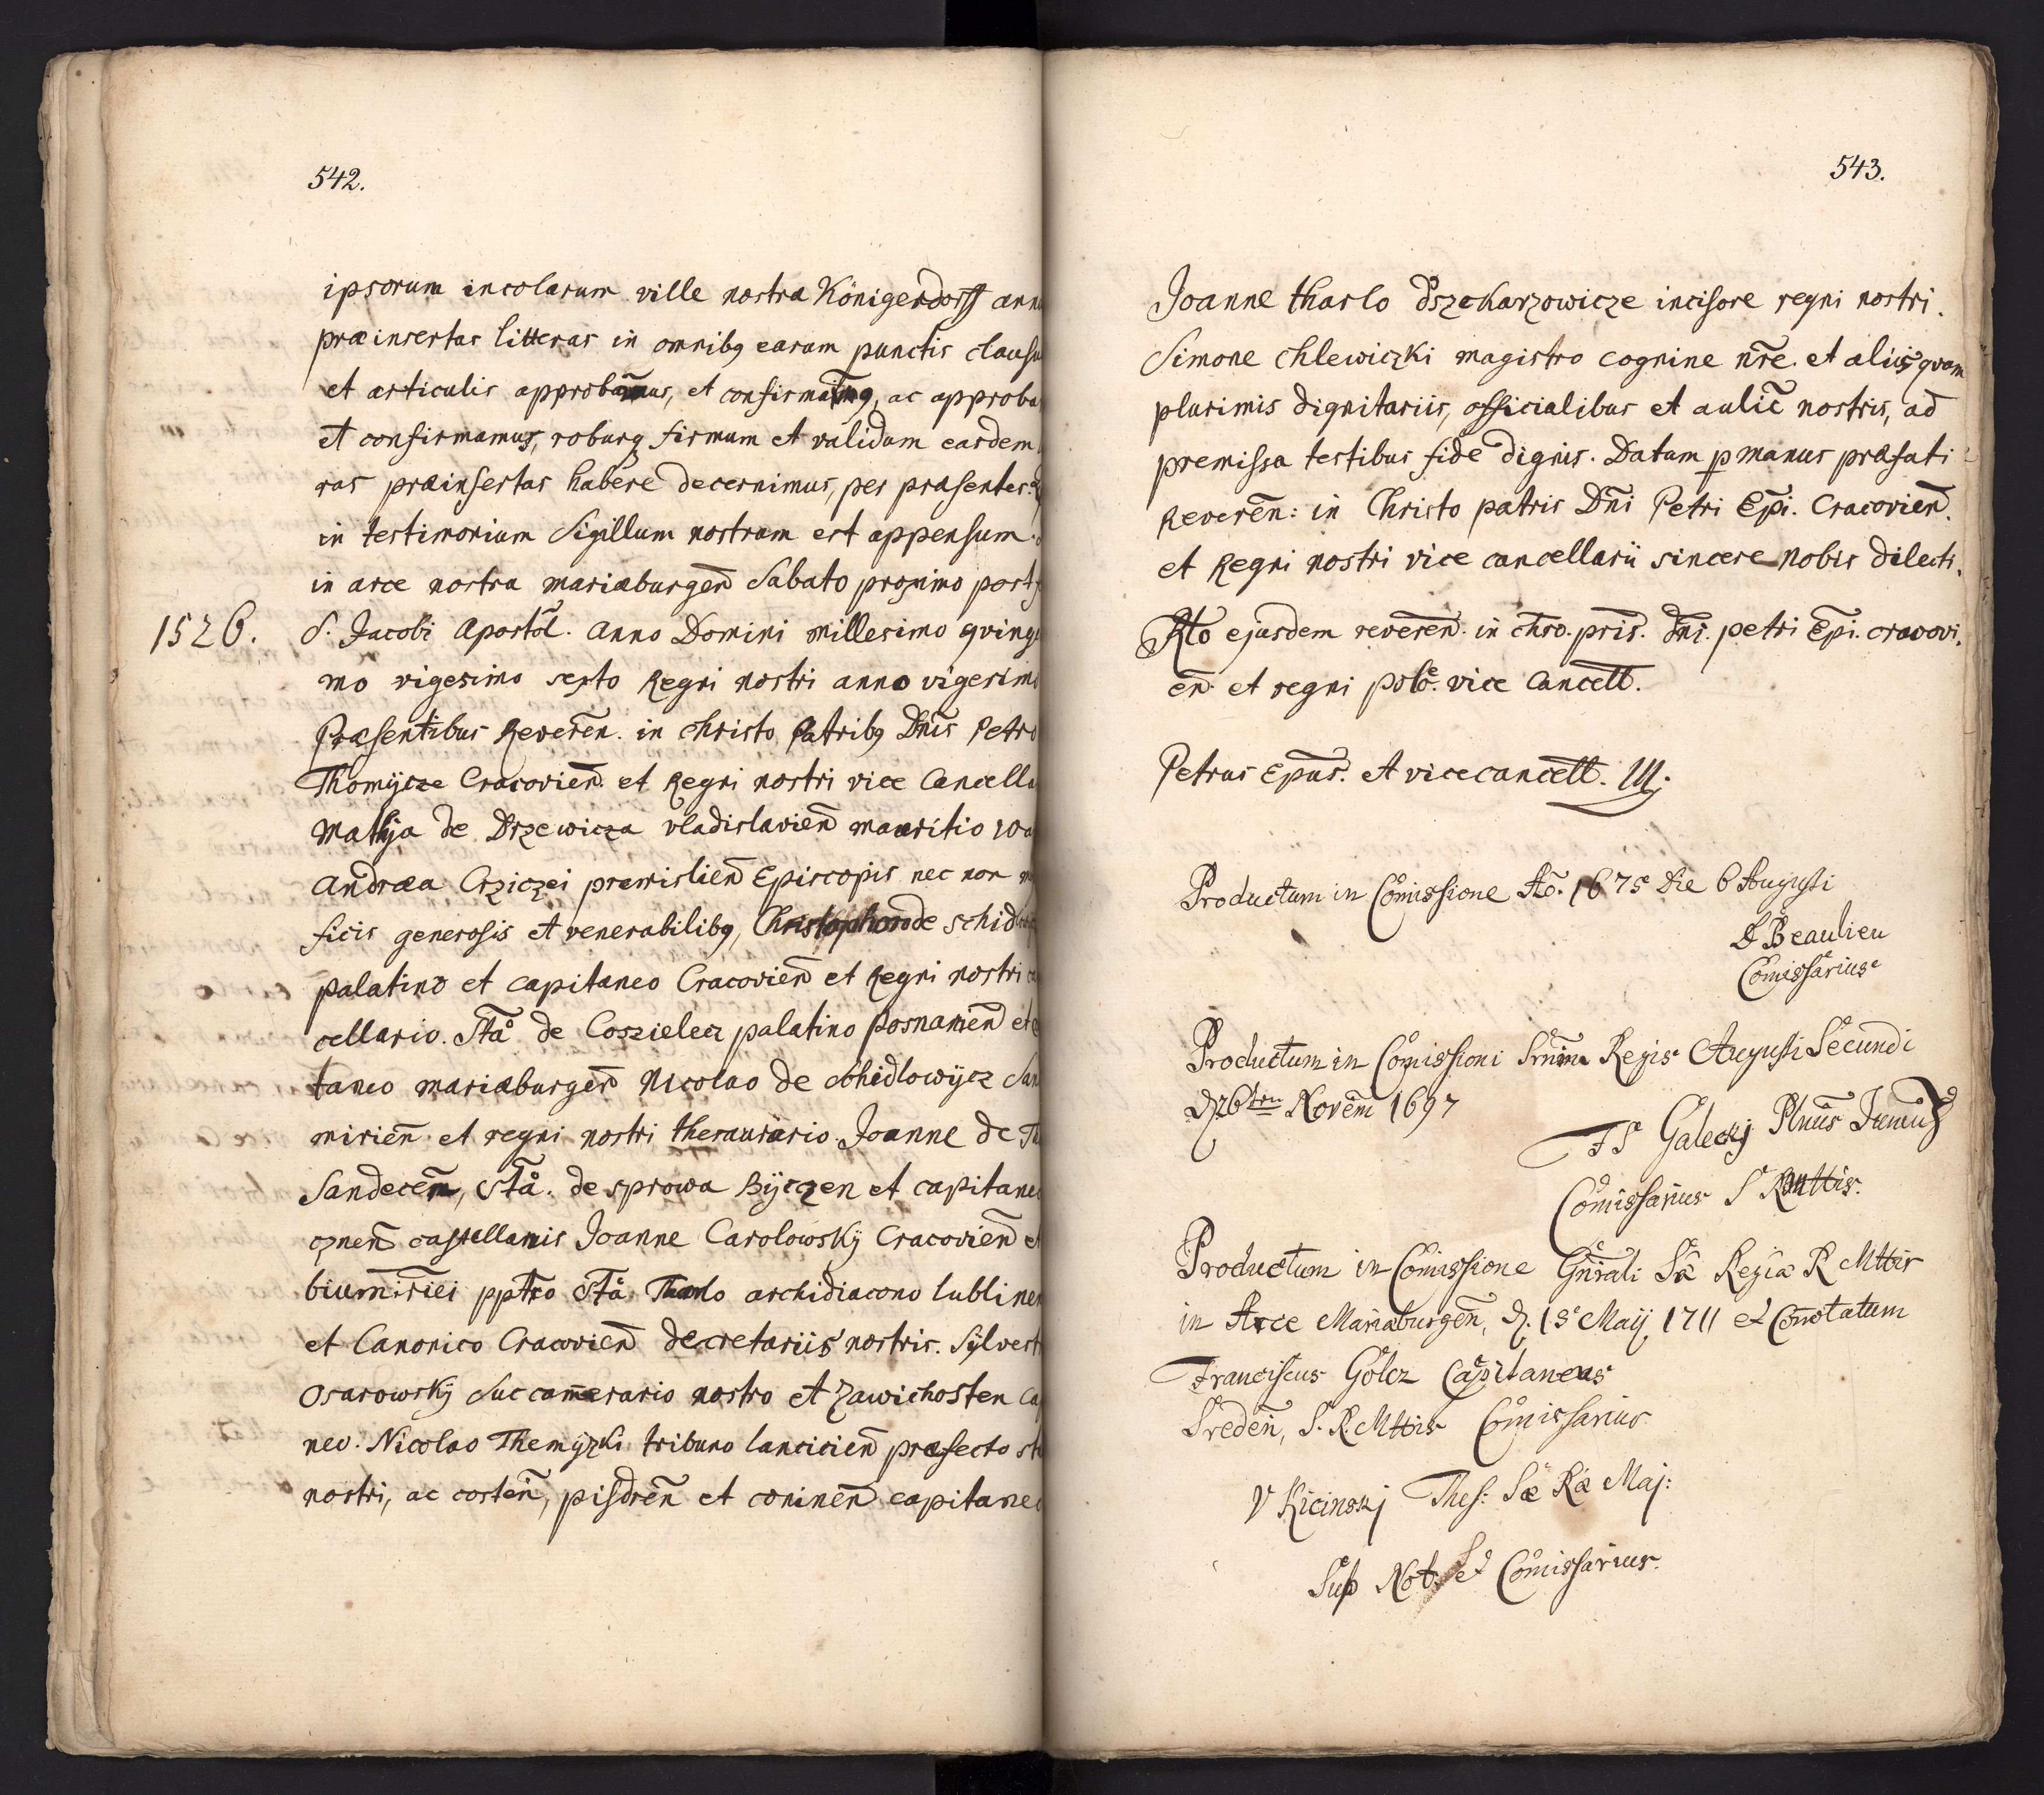 542.
ipsorum incolarum ville nostra Königerdorff ann
præinsertas litteras in omnibq earum punctis clausu
et articulis approbāmus, et confirmam̄q, ac approba
et confirmamus, roburq firmum et validum easdem
ras præinsertas habere decernimus, per præsentes.
in testimonium Sigillum nostrum est appensum.
in arce nostra mariæburgen̄ Sabato proximo post
1526.
S. Jacobi Apostol̄. Anno Domini millesimo qving
mo vigesimo sexto Regni nostri anno vigesimo
Præsentibus Reveren̄. in christo Patribq Dn̄is Petro
Thomÿcze Cracovien̄. et Regni nostri vice Cancella
Mathja de Drzewicza vladislavien̄ mauritio
Andræa Crziczci premislien̄ Episcopis nec non
ficis generosis et venerabilibq, Christophoro de Schid
palatino et capitaneo Cracovien̄ et Regni nostri
cellario. Sta͞ de Coszielecz palatino posnanien̄ et
taneo mariæburgen̄ Nicolao de Schidlowÿcz San
mirien̄. et regni nostri thesaurario. Joanne de
Sandecen̄, Sta͞. de sprowa Bÿczen et capitane
cznen̄ castellanis Joanne Carolowskÿ Cracovien̄ e
pptro Sta͞. Tharlo archidiacono lubline
et Canonico Cracovien̄ secretariis nostris. Sÿlvest
Osarowskÿ Succam̄erario nostro et Zawichosten Ca
neo. Nicolao Themÿzki tribuno lancicien̄ præfecto
nostri, ac costen̄, pisdren̄ et coninen̄ capitane
543.
Joanne tharlo Dszekarzowicze incisore regni nostri.
Simone chlewiczki magistro cognine nr̄e. et aliis qvam
plurimis dignitariis, officialibus et aulic̄ nostris, ad
premissa testibus fide dignis. Datum p manus præfati
Reveren̄: in Christo patris Dn̄i Petri Ep̄i. Cracovien̄.
et Regni nostri vice cancellarii sincere nobis dilecti.
Rl̄o ejusdem reveren̄. in chr̄o. pris̄. Dn̄i. petri Ep̄i. cracovi.
en̄. et regni pol̄e. vice Cancell̄.
Petrus Ep̄us. et vicecancell̄.
Productum in Com̄issione Ao͞. 1675 Die 6 Augusti
Beaulieu
Com̄issarius
Productum in Com̄issioni Regis Augusti Secundi
Novem̄ 1697
Galeckj
Com̄issarius S R
Productum in Com̄issione Gn̄rali Sæ Regiæ R Mttis
in Arce Mariæburgen̄, d. 18 Maij 1711 et Con̄otatum
Franciscus Golcz Capitaneus
Sreden̄, S. R. Mttis Com̄issarius
V Kicinskj Thes: Sæ Ræ Maj:
Sup Not: et Com̄issarius.